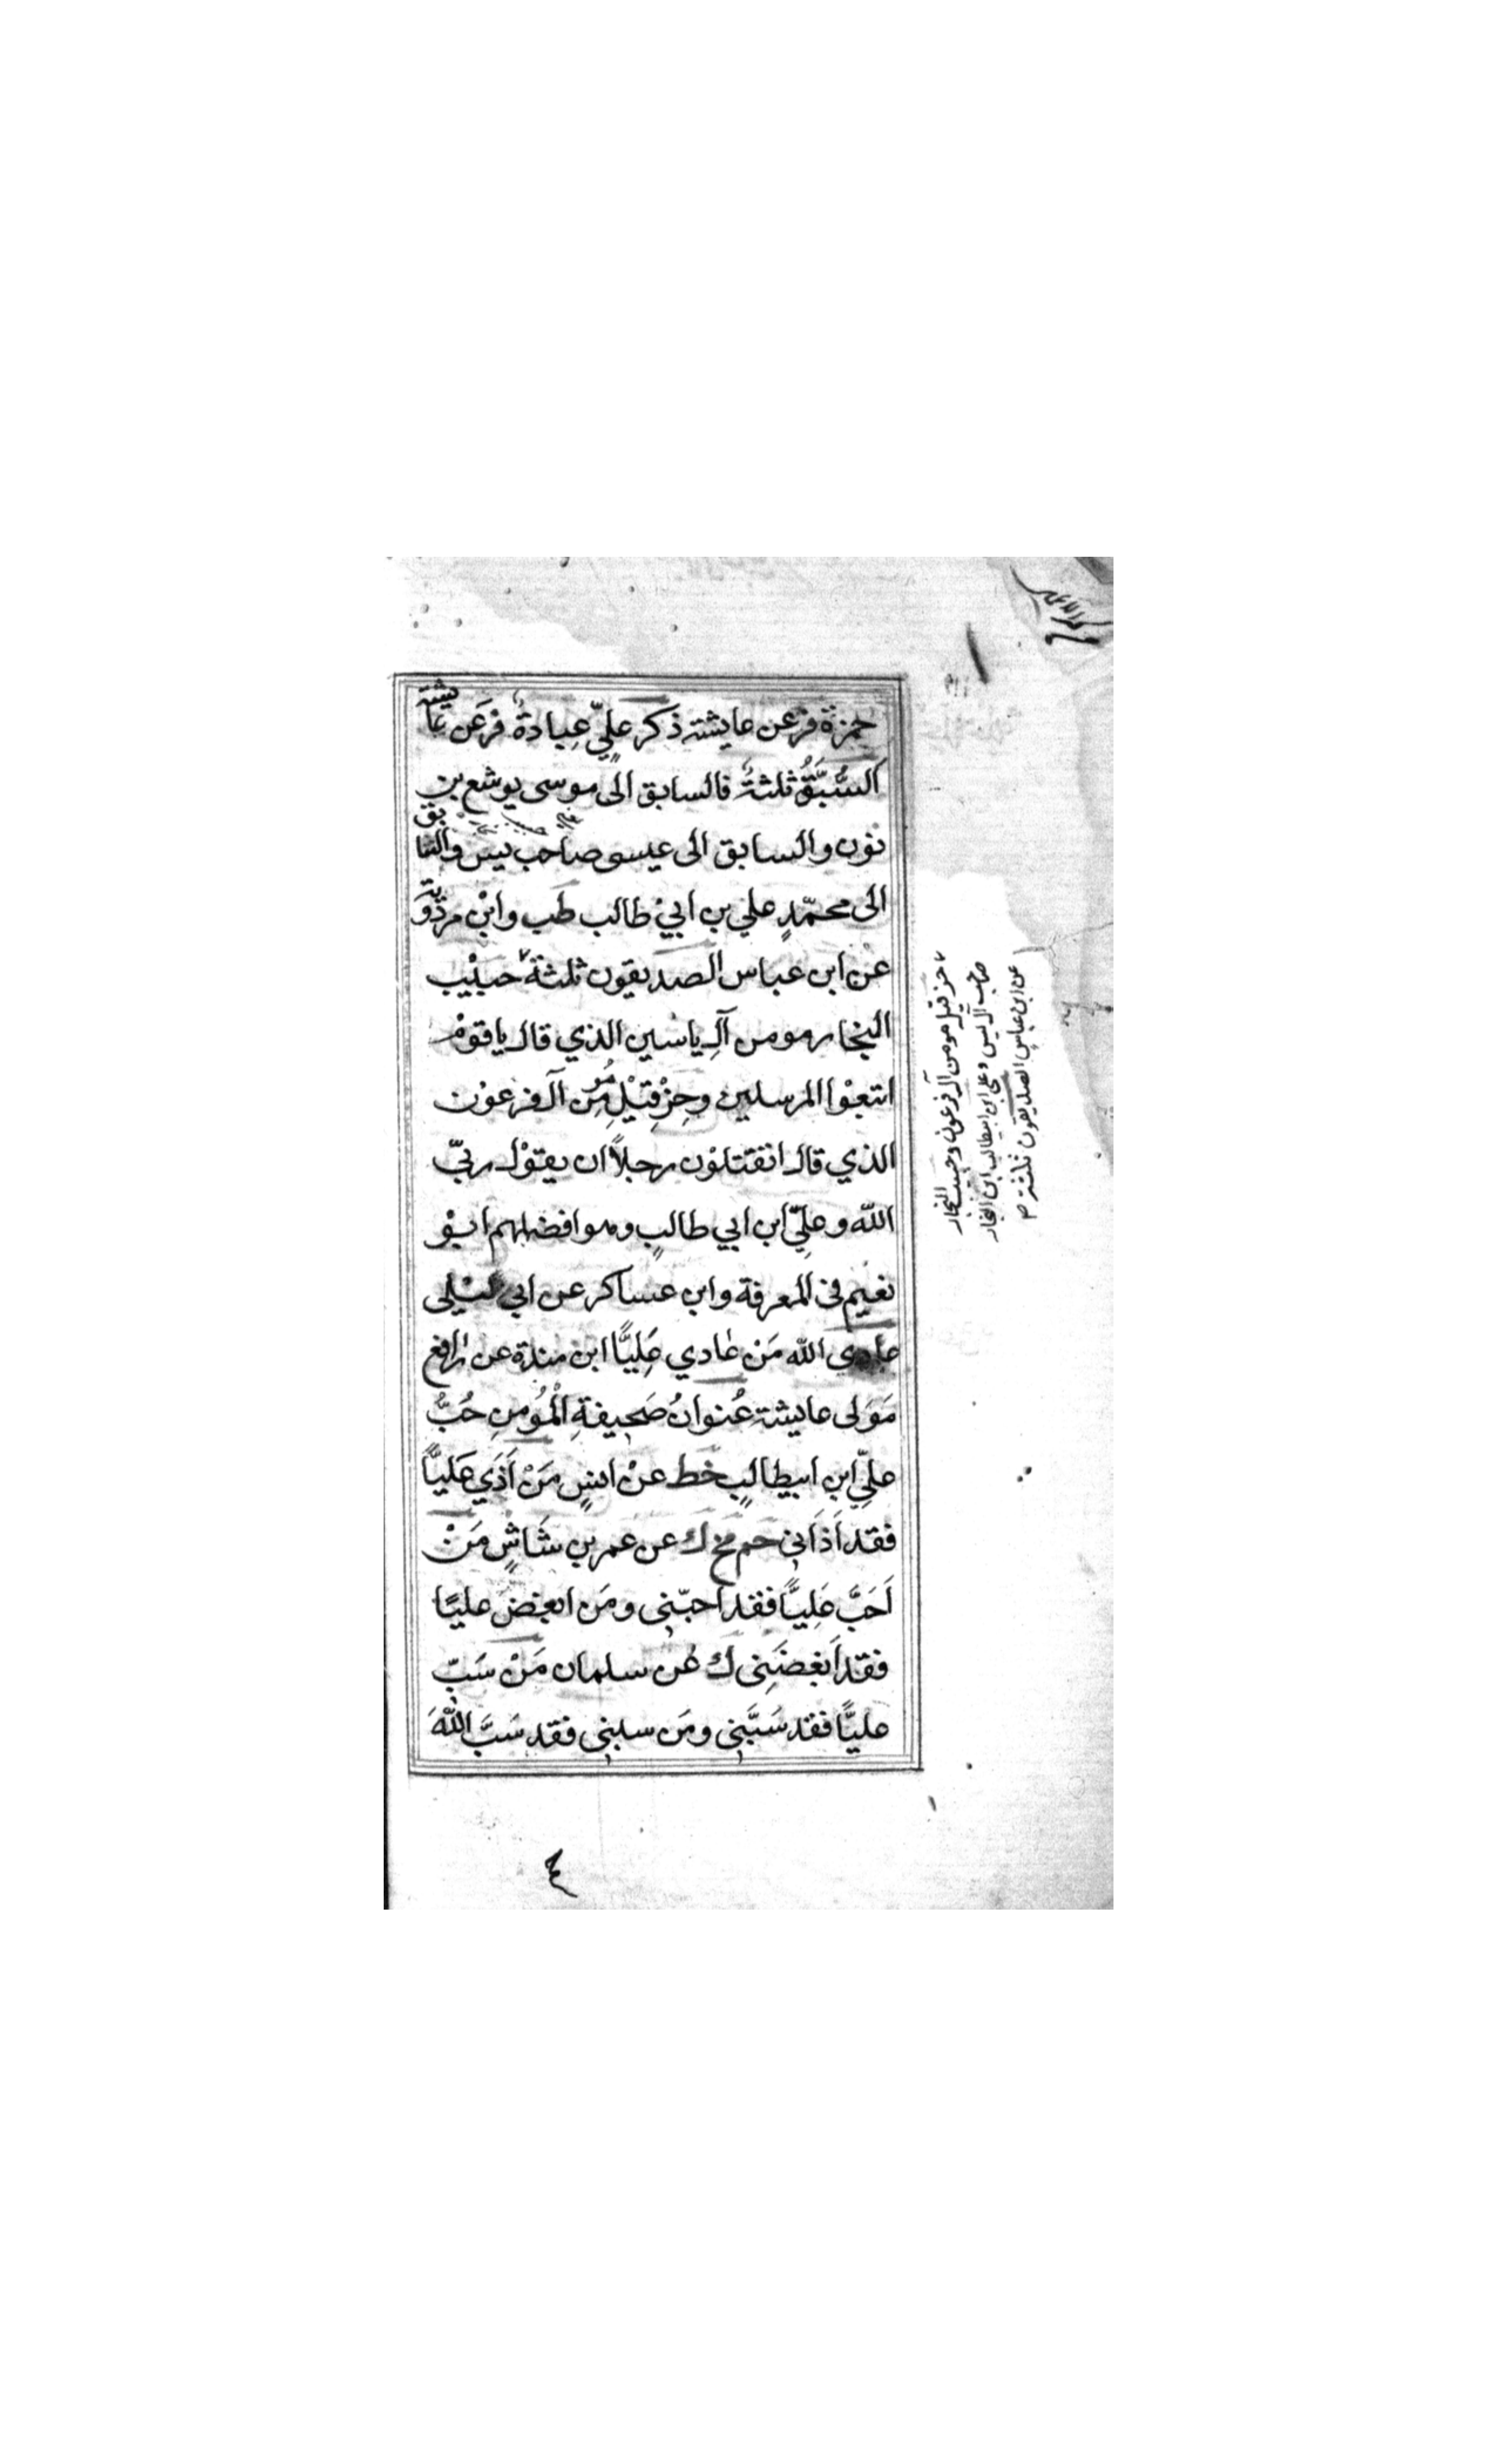 حمزة فر عن عايشة ذكر عليٍّ عِبادةٌ فر عَن عايشة
السُّبَّقُ ثلثةٌ فالسابق الى موسى يوشع بن
نون والسابق الى عيسى صاحب يس والسابق
الى محمّدٍ علي بن ابي طالب طب وابن مردوية
عن ابن عباس الصديقون ثلثة حبيب
النجار مومن آلِ ياسين الذي قال ياقوم
اتبعوا المرسلين وحِزْقيْل مُومِن آل فرعون
الذي قال اتقتلون رجلاً ان يقول ربّي
الله وعليّ ابن ابي طالبٍ وهوا فضلهم ابو
نعيم في المعرفة وابن عساكر عن ابي ليلى
عادي الله مَن عادي عَلِيًّا ابن مندة عن رافع
مَولى عايشة عُنوانُ صَحِيفةِ الْمُومنِ حُبُّ
عليِّ ابن ابيطالبٍ خط عنْ انسٍ مَنْ آذَي عَليًّا
فقد اَذاني حم تخ ك عن عمر بن شَاشٍ مَنْ
اَحَبَّ عَلِيًّا فقد احبّني ومَن ابغض عليًا
فقد اَبغضَنِي ك عن سلمان مَنْ سَبّ
عليًّا فقد سَبَّني ومَن سبني فقد سَبَّ اللّٰهَ
حزقيل مومن آل فرعون وحبيب النجار
صاحب آل يس وعلي ابن ابيطالب ابن النجار
عن ابن عباس الصديقون ثلثة م
٤